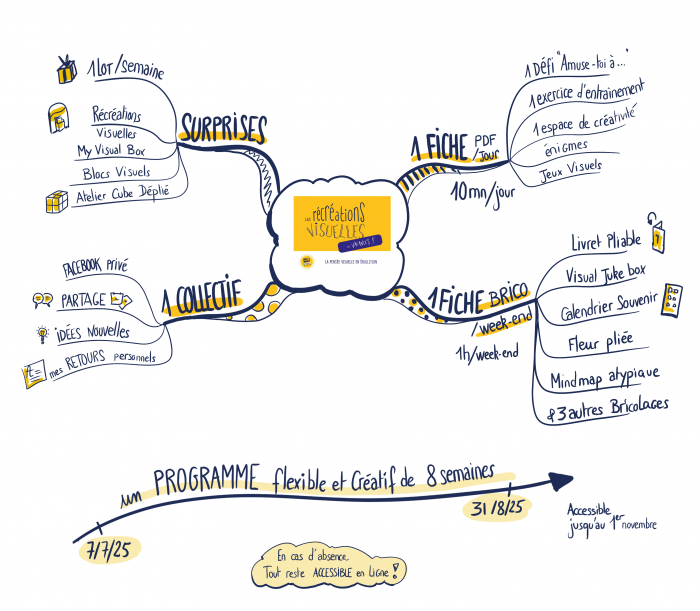 1 LOT/Semaine
Récréations
Visuelles
My Visual Box
Blocs Visuels
Atelier Cube Déplié
SURPRISES
1 FICHE PDF
/jour
10mn/jour
1 Défi "Amuse-toi à..."
1 exercice d'entrainement
1 espace de créativité
énigmes
Jeux Visuels
LES récréations
VISUELLES
LA PENSÉE VISUELLE EN ÉBULLITION
FACEBOOK Privé
PARTAGE
iDÉES Nouvelles
mes RETOURS personnels
1 COLLECTIF
1 FICHE BRICO
/week-end
1h/week-end
Livret Pliable
Visual Juke box
Calendrier Souvenir
Fleur pliée
Mindmap atypique
& 3 autres Bricolages
un PROGRAMME flexible et Créatif de 8 semaines
7/7/25
31/8/25
Accessible
jusqu'au 1er novembre
En cas d'absence,
Tout reste ACCESSIBLE en Ligne !